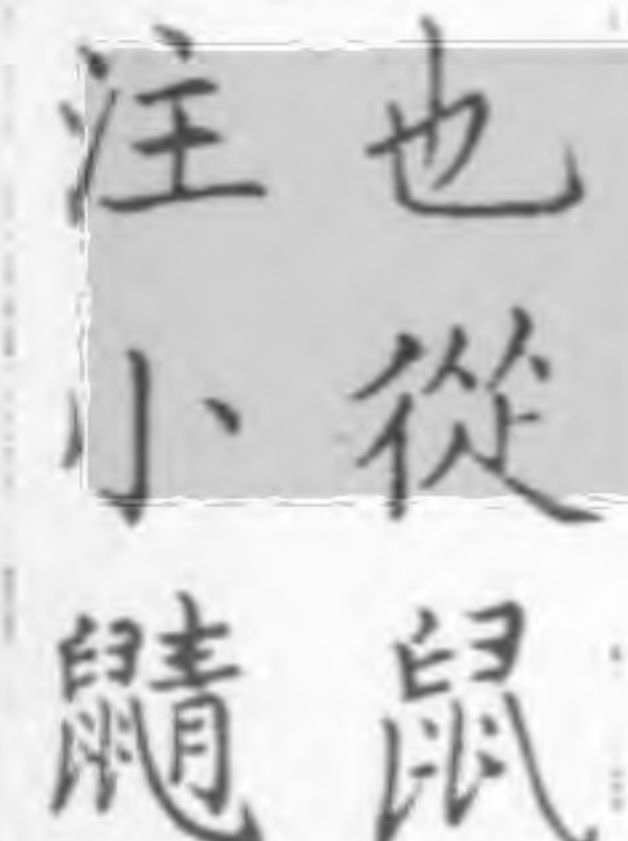 也從鼠
注小鼱